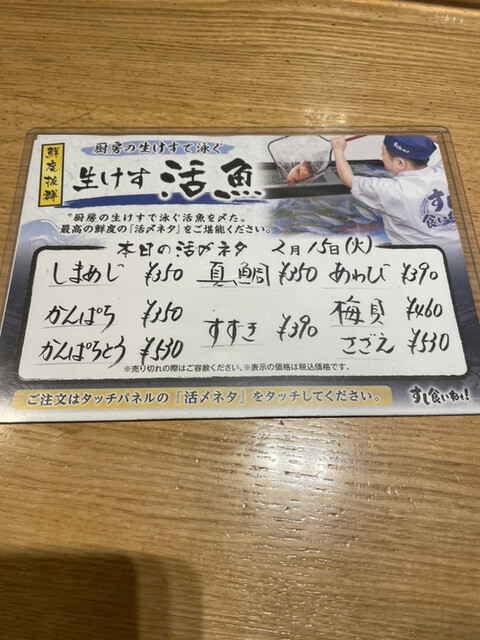 鮮度抜群
厨房の生けすで泳ぐ
生けす 活魚
厨房の生けすで泳ぐ活魚を〆た。
最高の鮮度の『活〆ネタ』をご堪能ください。
本日の活〆ネタ 2月15日(火)
しまあじ ¥350 真鯛 ¥350 あわび ¥390
かんぱち ¥350 すずき ¥390 梅貝 ¥460
かんぱちとろ ¥530 さざえ ¥530
※売り切れの際はご容赦ください。※表示の価格は税込価格です。
ご注文はタッチパネルの『活〆ネタ』をタッチしてください。
すし食いねぇ!